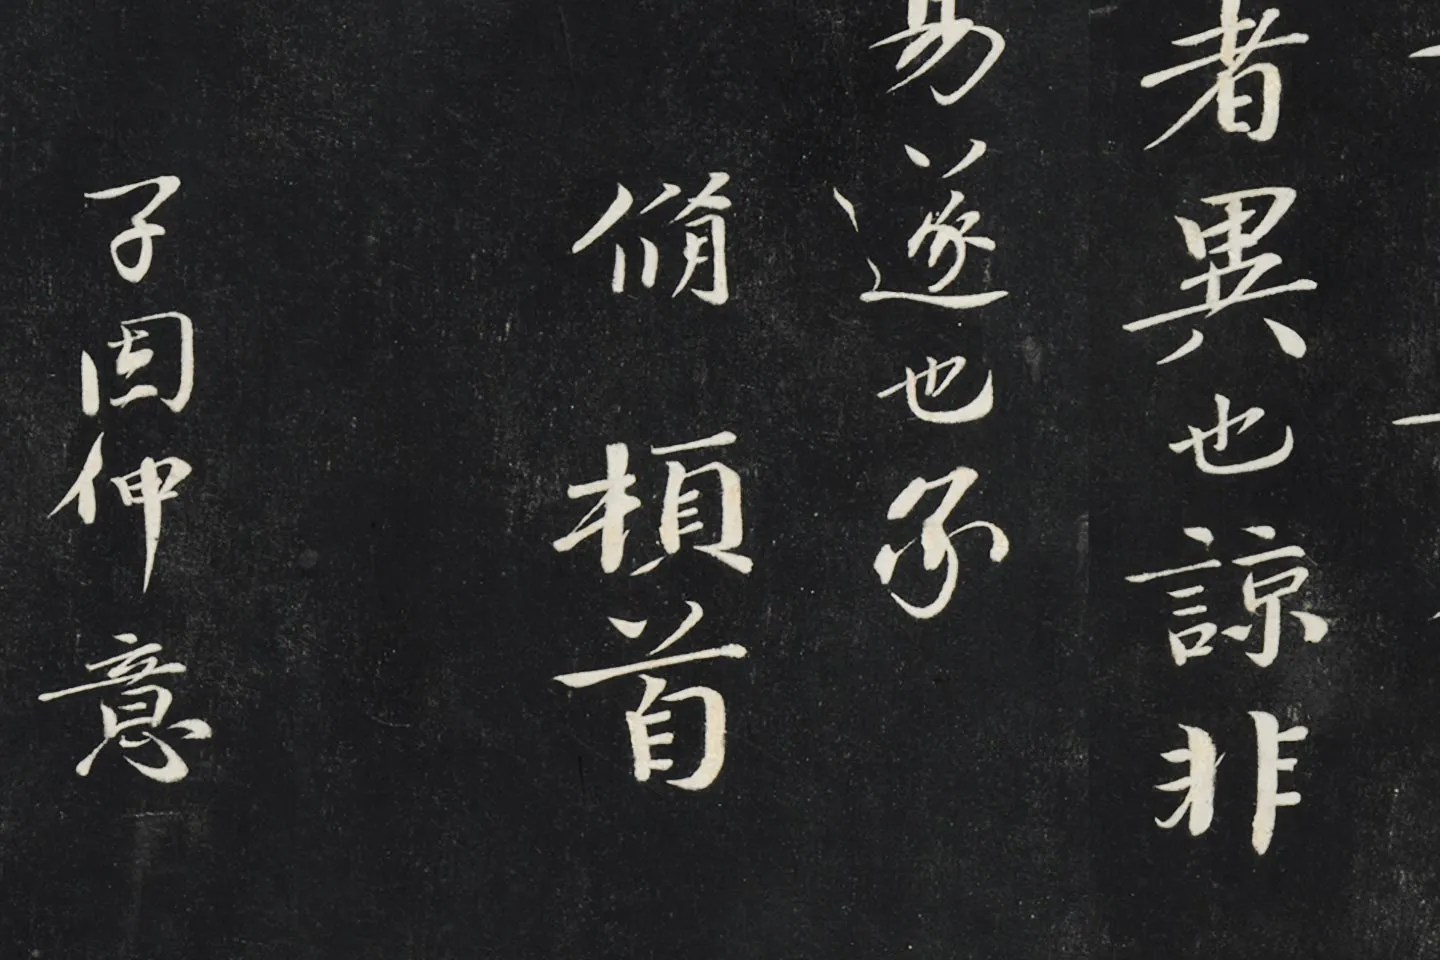 者異也諒非
易遂也不
脩頓首
子因仲意